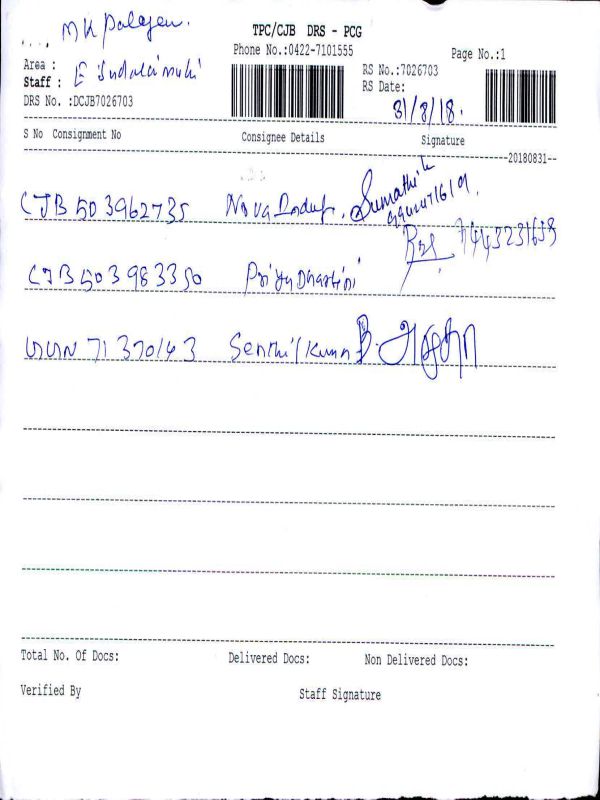 MK Palayam.
TPC/CJB DRS - PCG
Phone No.:0422-7101555
Page No.:1
Area :
Staff : E
DRS No. :DCJB7026703
RS No.:7026703
RS Date:
31/8/18.
S No Consignment No Consignee Details Signature
--20180831--
CJB 503962735 Nova Sumathi
CJB 503983350 Priya Dharsini
71370143 Senthil Kumar
Total No. Of Docs: Delivered Docs: Non Delivered Docs:
Verified By Staff Signature